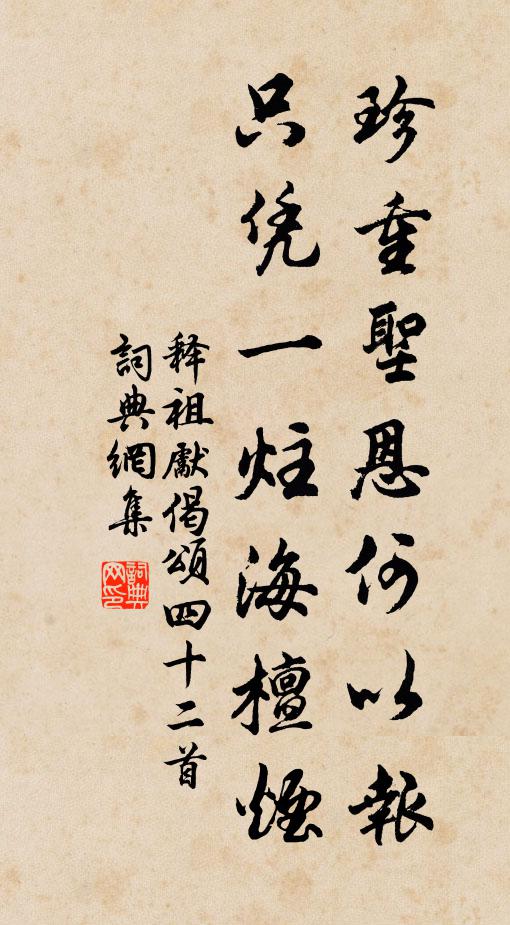 珍重聖恩何以報
只凭一炷海檀煙
释祖獻偈頌四十二首
詞典網集
詞典网印